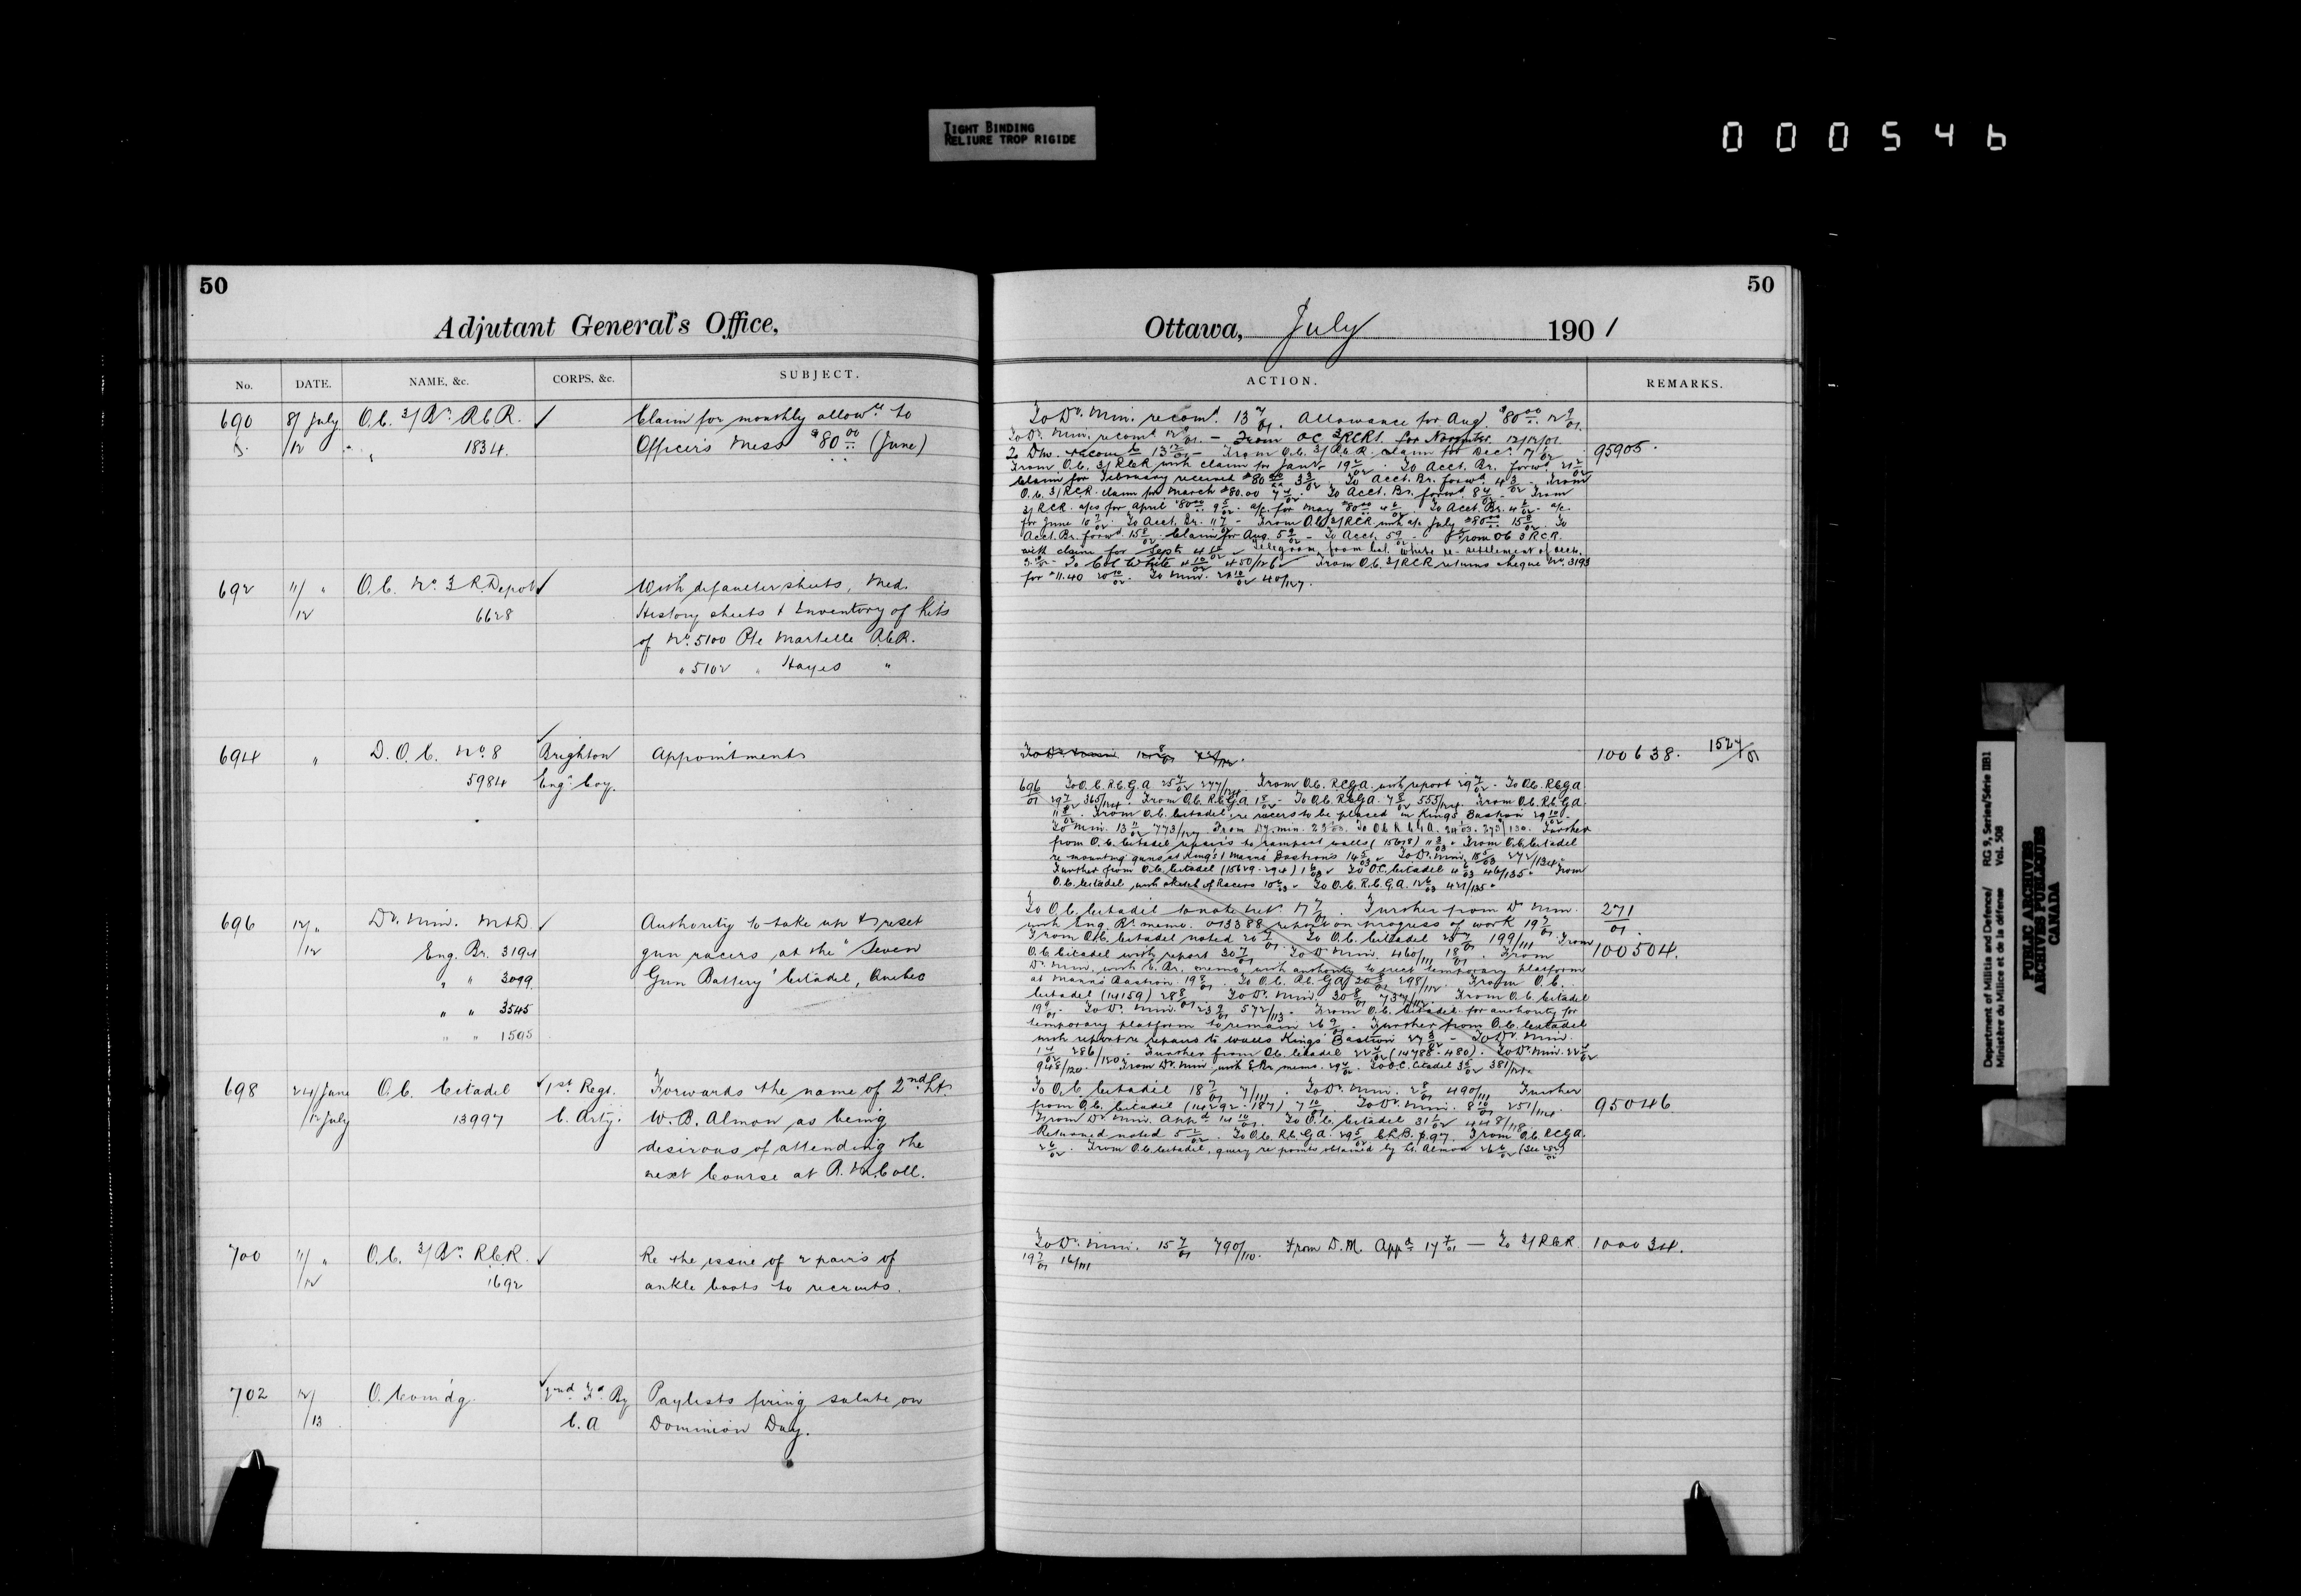 TIGHT BINDING
RELIURE TROP RIGIDE
000546
50
Adjutant General's Office,
No. DATE. NAME, &c. CORPS, &c. SUBJECT.
690 8/ July O.C. 3/Bn. R.C.R. ✓ Claim for monthly allowce to
/12 " 1834. Officers Mess $80.00 (June)
692 11/ " O.C. No. 3 R. Depot ✓ With defaulter sheets, Med.
/12 6628 History sheets & Inventory of Kits
of No. 5100 Pte Martelle R.C.R.
" 5102 " Hayes "
694 " D.O.C. No. 8 Brighton Appointments
5984 Engr. Coy.
696 12/ " Dy. Min. M&D ✓ Authority to take up & reset
/12 Eng. Br. 3194 gun racers at the "Seven
" " 3099 Gun Battery" Citadel, Quebec
" " 3545
" " 1505
698 24/June O.C. Citadel ✓ 1st Regt. Forwards the name of 2nd Lt.
/12 July 13997 C. Arty. W. B. Almon as being
desirous of attending the
next Course at R. M. Coll.
700 11/ " O.C. 3/Bn. R.C.R. ✓ Re the issue of 2 pairs of
/12 1692 ankle boots to recruits.
702 12/ O. Comdg. 2nd Fd. By Paylists firing salute on
/13 C.A Dominion Day.
50
Ottawa, July 1901
ACTION. REMARKS.
To Dy. Min. recomd. 13 7/01. Allowance for Aug. $80.00 12 9/01.
To Dy. Min. recomd 12 9/01. — From OC 3/RCR. for November. 12/12/01
From O.C. 3/RCR with claim for Jany 19 2/02. To Acct. Br. forwd 21 2/02
95905.
Claim for February received $80.00 3 3/02. To Acct. Br. forwd 4 3/02. From
O.C. 3/R.C.R. claim for March $80.00 7 4/02. To Acct. Br. forwd. 8 4/02 - From
3/RCR. a/cs for April $80.00 9 5/02. a/c. for May $80.00 4 6/02. To Acct. Br. 4 6/02. a/c.
for June 10 7/02. To Acct. Br. 11 7 - From O.C. 3/RCR with a/c July $80.00 15 8/02. To
Acct. Br. forwd. 15 8/02. Claim for Aug. 5 9/02 - To Acct. 5 9/02. From OC 3 RCR.
with claim for Sept. 4 10/02
To Col White 4 10/02 450/126 From O.C. 3/RCR returns cheque No. 3193
for $11.40 20 10/02. To Min. 22 10/02 40/127.
100638. 1524/01
696/01 To O.C. R.C.G.A 25 7/02 From O.C. RCGA. with report 29 7/02. To O.C. RCGA
29 7/02 365/124. From O.C. R.C.G.A. 1 8/02 - To O.C. RCGA. 7 8/02 555/124. From O.C. R.C.G.A.
From O.C. Citadel, re racers to be placed in Kings Bastion 29 10/02.
To Min. 13 11/02 773/127. From Dy. Min. Further
from O.C. Citadel repairs to rampart walls (15618) 11 3/03. From O.C. Citadel
re mounting guns at King's & Manns Bastions 14 5/03. To Dy. Min. 15 5/03 272/134.
Further from O.C. Citadel (15629-294) 1 6/03. To O.C. Citadel 4 6/03 46/135. From
O.C. Citadel, with sketch of Racers 10 6/03. To O.C. R.C.G.A. 12 6/03 421/135.
To O.C. Citadel to note & ret. 17 7/01. Further from Dy. Min.
with Eng. Br. memo. 013388 report on progress of work 19 7/01.
From O.C. Citadel noted To O.C. Citadel 25 7/01 199/111 From
O.C. Citadel with report 30 7/01. To Dy. Min. 460/111 1 8/01. From
Dy. Min. with E. Br. memo, with authority to erect temporary platform
at Manns Bastion. 19 8/01. To O.C. R.C.G.A 20 8/01 298/112. From O.C.
Citadel (14159) 28 8/01. To Dy. Min. 30 8/01 737/112. From O.C. Citadel
19 9/01. To Dy. Min. 23 9/01 572/113. From O.C. Citadel. for authority for
temporary platform to remain 26 9/01. Further from O.C. Citadel
with report re repairs to walls Kings Bastion 27 3/02 - To Dy. Min.
1 4/02 286/120. Further from O.C. Citadel 22 4/02 (14788-480). To Dy. Min. 22 4/02
948/120. From Dy. Min. with E. Br. memo. 29 4/02. To O.C. Citadel 3 5/02 381/121.
271/01
100504.
To O.C. Citadel 18 7/01 7/111. To Dy. Min. 2 8/01 490/111 Further
from O.C. Citadel (14292-187) 7 10/01. To Dy. Min. 8 10/01 251/114.
From Dy. Min. Appd 14 10/01. To O.C. Citadel 31 1/02 448/118.
Returned noted 5 2/02. To O.C. R.C.G.A. 29 5/02 p.97. From O.C. RCGA.
2 6/02. From O.C. Citadel, query re points obtained by Lt. Almon 26 6/02
95046.
To Dy. Min. 15 7/01 790/110. From D.M. Appd 17 7/01 — To 3/RCR. 100034.
19 7/01 16/111
Department of Militia and Defence/ RG 9, Series/Série IIB1
Ministère du Milice et de la défense Vol. 508
PUBLIC ARCHIVES
ARCHIVES PUBLIQUES
CANADA